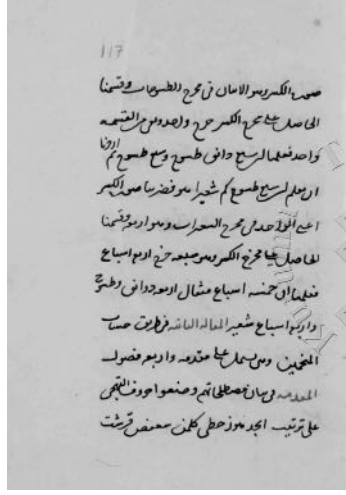 117
صورة الكسر وهو الاثنان فى مخرج الطسوجات وقسمنا
الحاصل على مخرج الكسر خرج واحد من القسمة
واحد فعلمنا ان سبع دانق طسوج وسبع طسوج ثم اردنا
ان نعلم ان سبع طسوج كم شعيرا هو فضربنا صورة الكسر
اعنى الواحد فى مخرج الشعيرات وهو اربعة وقسمنا
الحاصل على مخرج الكسر وهو سبعة خرج اربع اسباع
فعلمنا ان خمسة اسباع مثقال اربعة دوانق وطسوج
واربعة اسباع شعير المقالة الثالثة فى طريق حساب
المنجمين وهى يشتمل على مقدمة واربع فصول
المقدمة فى بيان مصطلحاتهم وضعوا حروف التهجى
على ترتيب ابجد هوز حطى كلمن سعفص قرشت